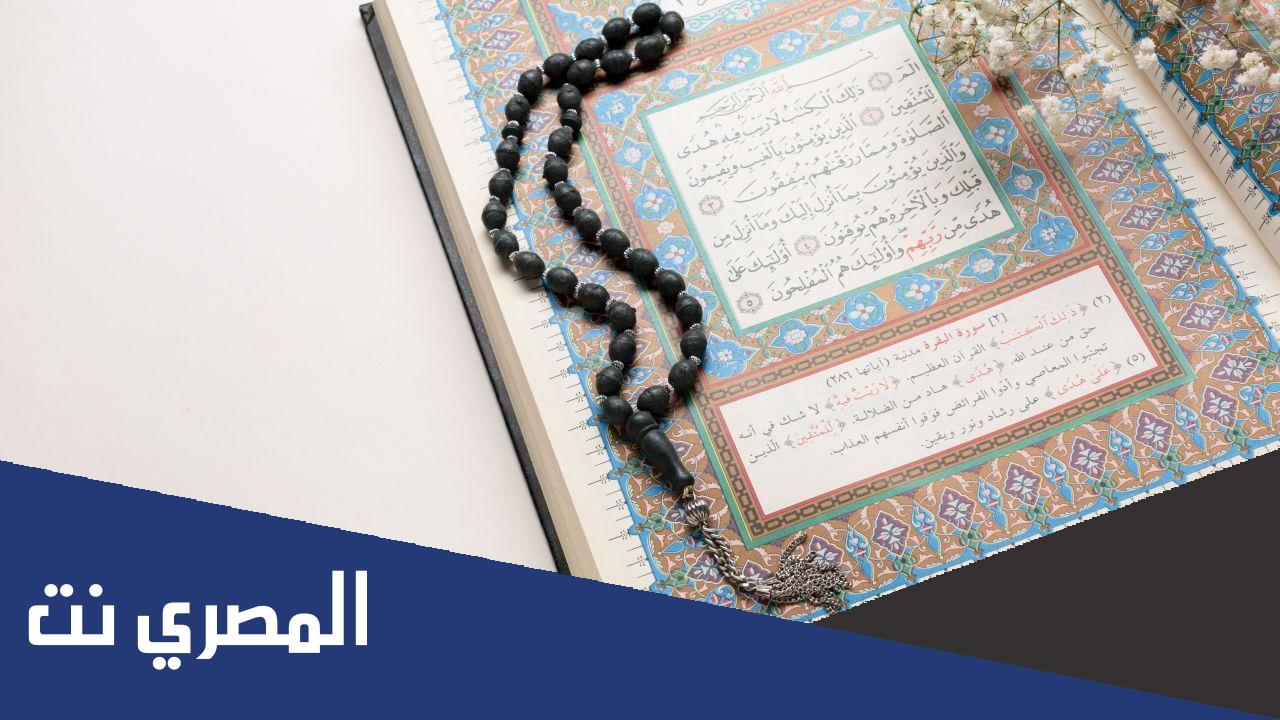 بِسْمِ ٱللَّهِ ٱلرَّحْمَٰنِ ٱلرَّحِيمِ
الٓمٓ ١ ذَٰلِكَ ٱلْكِتَٰبُ لَا رَيْبَ فِيهِ هُدًى
لِّلْمُتَّقِينَ ٢ ٱلَّذِينَ يُؤْمِنُونَ بِٱلْغَيْبِ وَيُقِيمُونَ
ٱلصَّلَوٰةَ وَمِمَّا رَزَقْنَٰهُمْ يُنفِقُونَ ٣
وَٱلَّذِينَ يُؤْمِنُونَ بِمَآ أُنزِلَ إِلَيْكَ وَمَآ أُنزِلَ مِن
قَبْلِكَ وَبِٱلْءَاخِرَةِ هُمْ يُوقِنُونَ ٤ أُو۟لَٰٓئِكَ عَلَىٰ
هُدًى مِّن رَّبِّهِمْ وَأُو۟لَٰٓئِكَ هُمُ ٱلْمُفْلِحُونَ ٥
[٢] سورة البقرة مدنية (آياتها ٢٨٦)
(٢) ﴿ذَٰلِكَ ٱلْكِتَٰبُ﴾ القرآن العظيم. ﴿لَا رَيْبَ فِيهِ﴾ لا شك في أنه
حق من عند الله. ﴿هُدًى﴾ هاد من الضلالة. ﴿لِّلْمُتَّقِينَ﴾ الذين
تجنّبوا المعاصي وأدّوا الفرائض فوَقوا أنفسهم العذاب.
(٥) ﴿عَلَىٰ هُدًى﴾ على رشاد ونور ويقين.
المصري نت